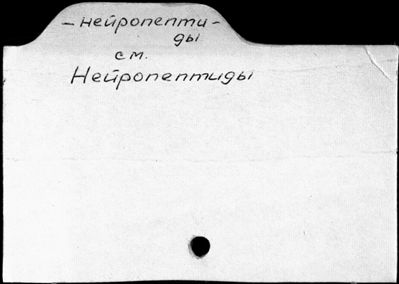 — нейропепти-
ды
см.
Нейропептиды